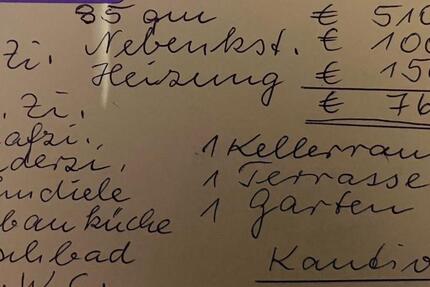 85 qm € 510
Zi. Nebenkst. € 100
Heizung € 150
Zi. € 76
1 Kellerrau
1 Terrasse
diele
bauküche 1 Garten
bad
W.C. Kautio